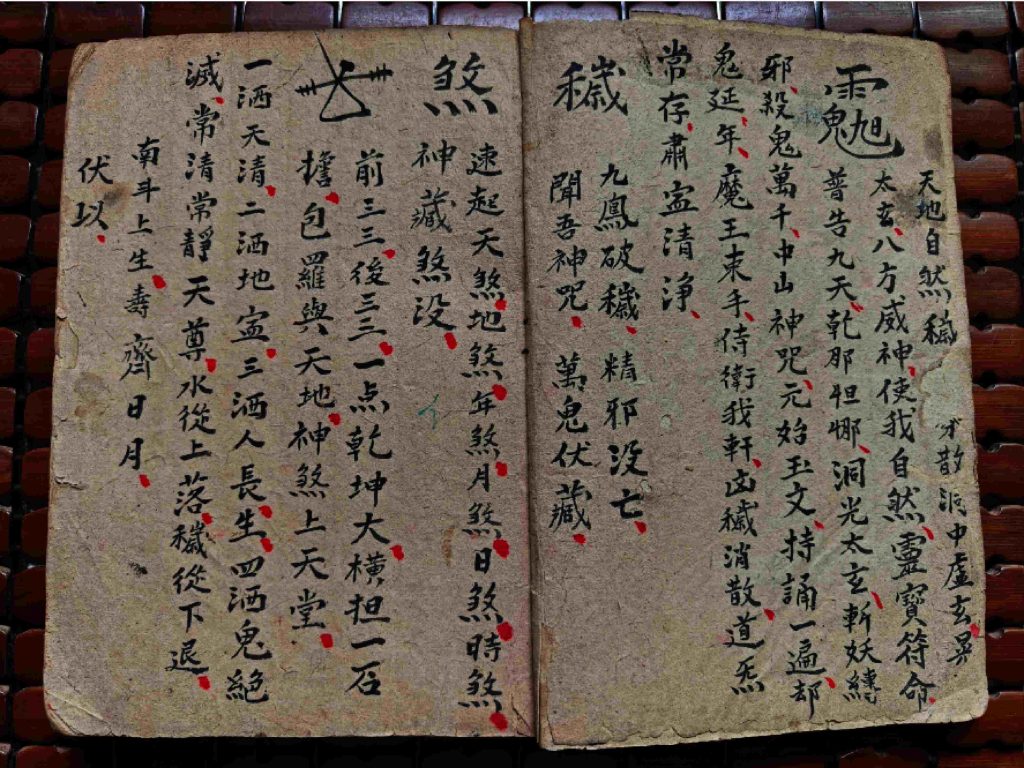 天地自然穢
分散洞中虛玄晃
太玄八方威神使我自然靈寶符命
普告九天乾那怛哪洞光太玄斬妖縛
邪殺鬼萬千中山神咒元始玉文持誦一遍却
鬼延年魔王束手侍衛我軒凶穢消散道炁
常存肅清淨
穢
九鳳破穢精邪没亡
聞吾神咒萬鬼伏藏
煞
速起天煞地煞年煞月煞日煞時煞
神藏煞没
前三三後三三一点乾坤大橫担一石
擔包羅與天地神煞上天堂
一洒天清二洒地三洒人長生四洒鬼絕
滅常清常靜天尊水從上落穢從下退
南斗上生壽齊日月
伏以